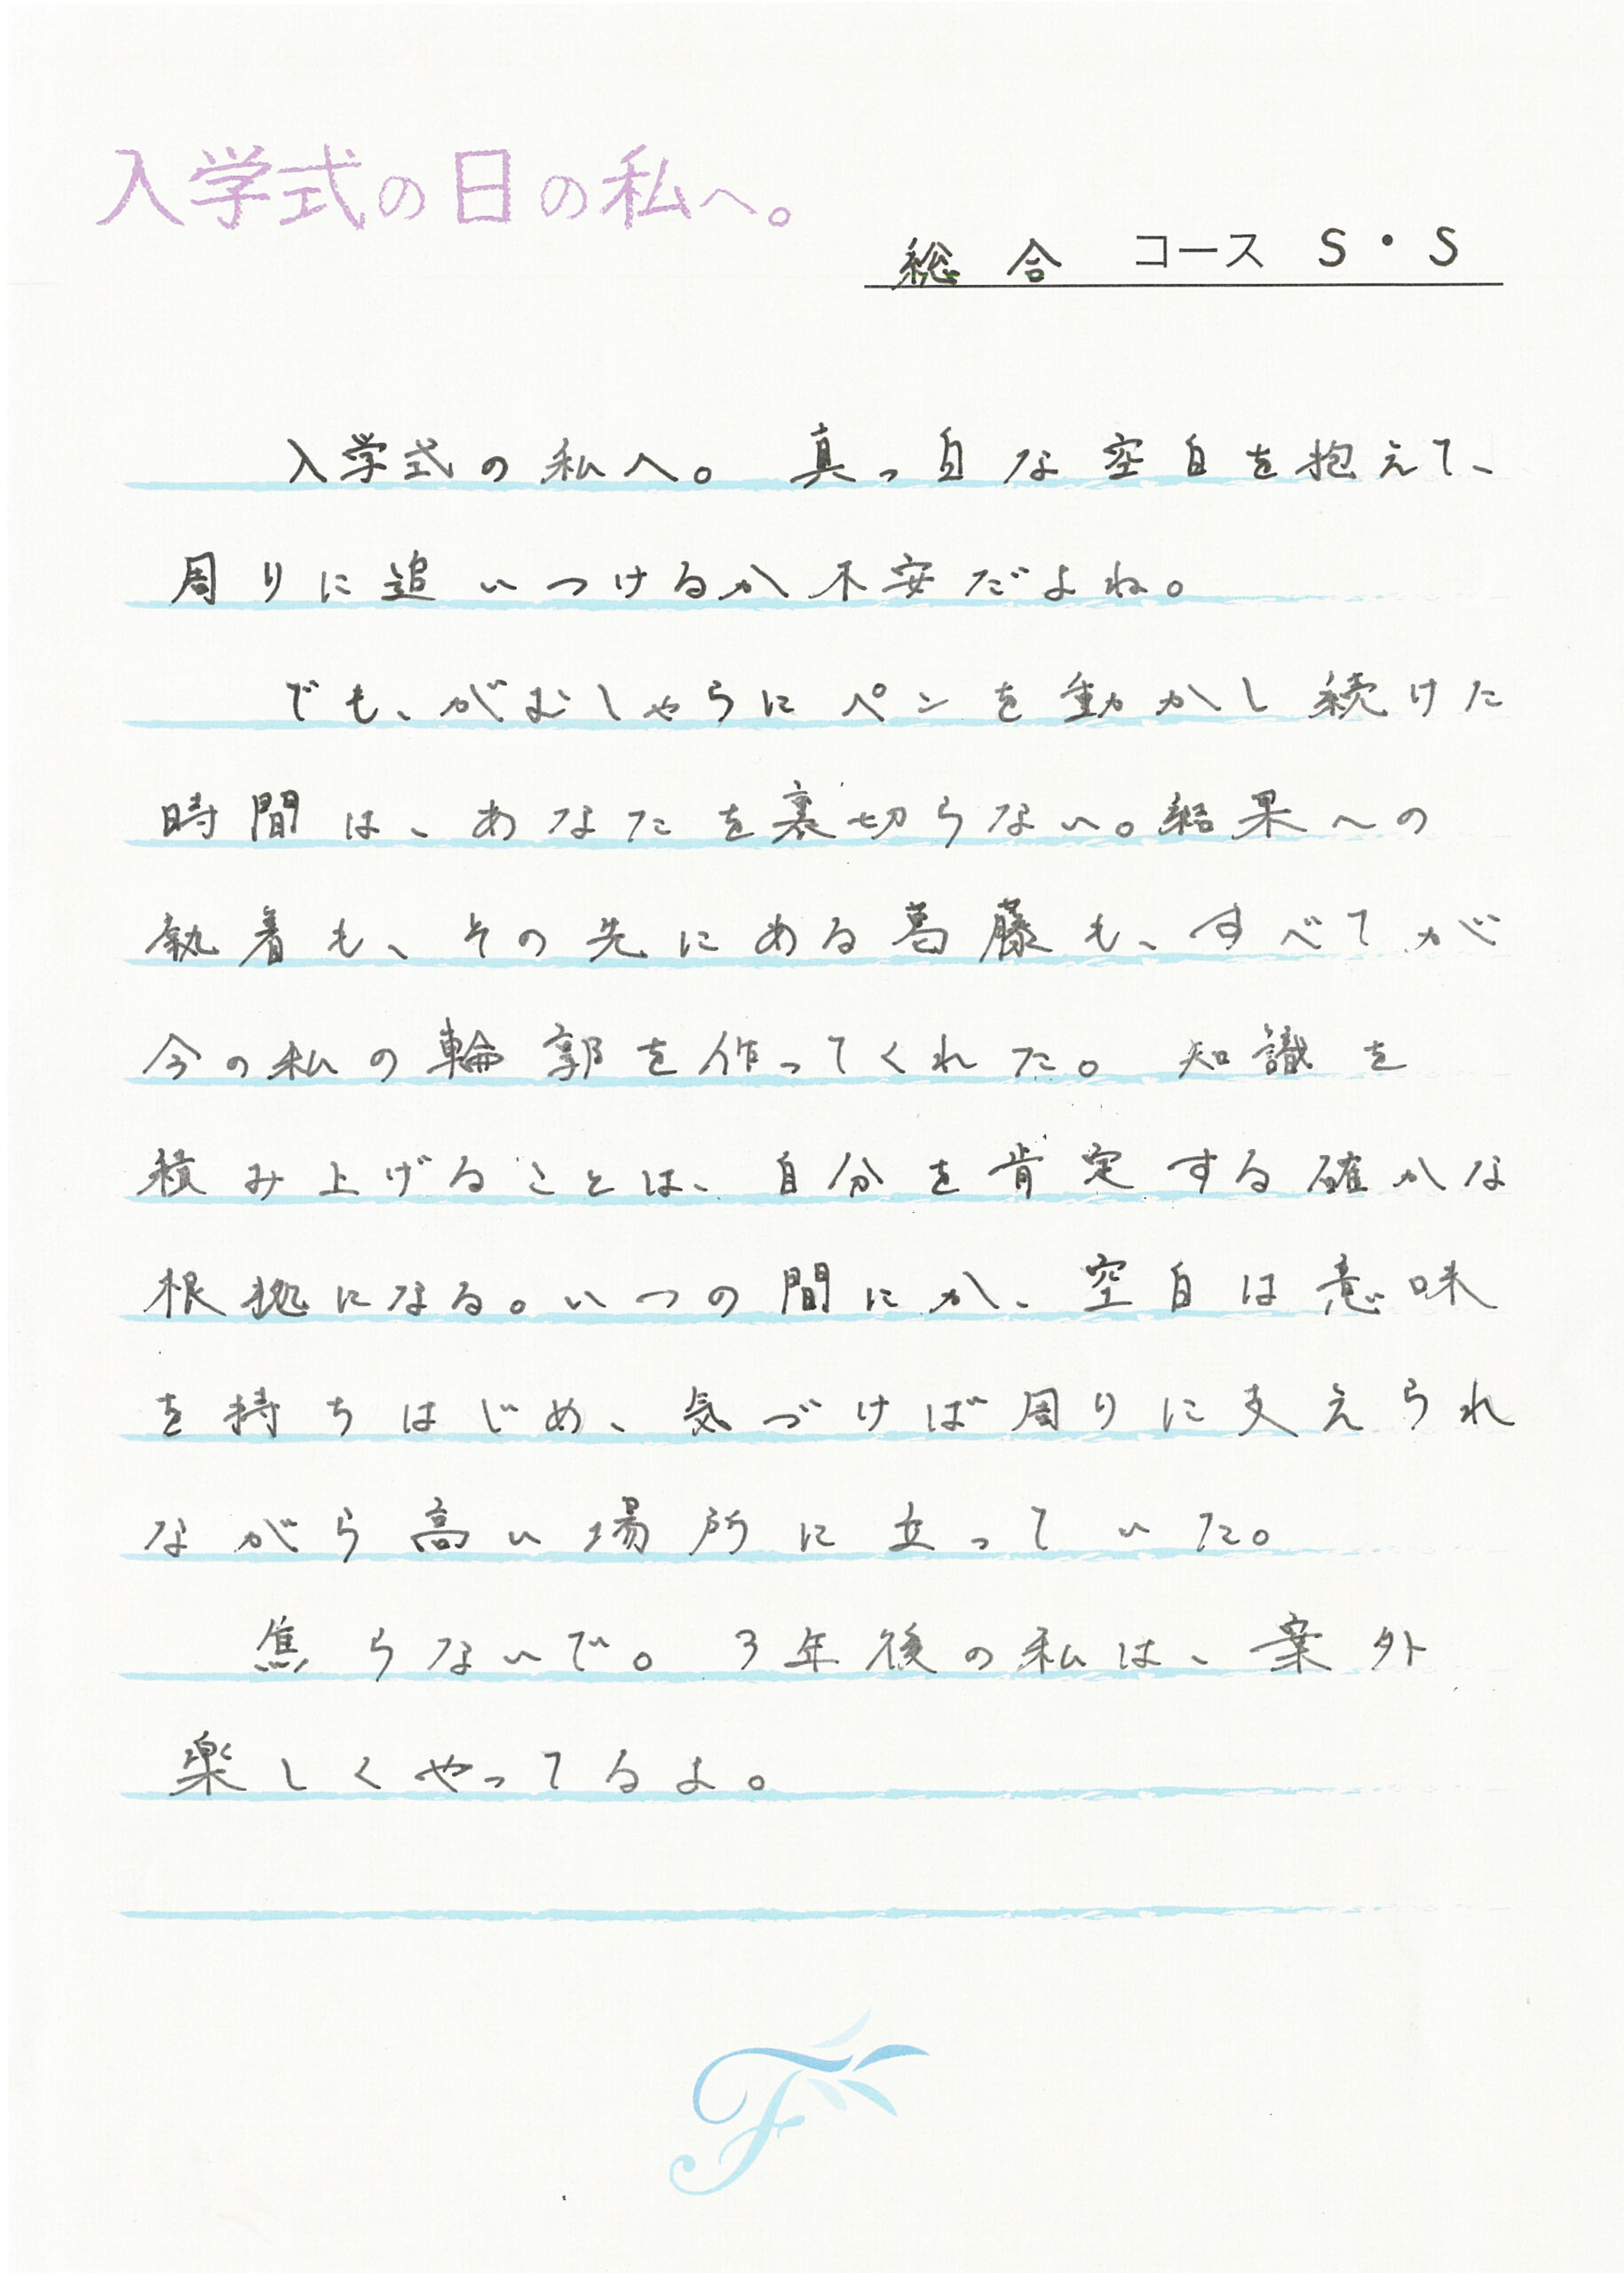 入学式の日の私へ。
総合 コース S・S
入学式の私へ。真っ白な空白を抱えて、
周りに追いつけるか不安だよね。
でも、がむしゃらにペンを動かし続けた
時間は、あなたを裏切らない。結果への
執着も、その先にある葛藤も、すべてが
今の私の輪郭を作ってくれた。知識を
積み上げることは、自分を肯定する確かな
根拠になる。いつの間にか、空白は意味
を持ちはじめ、気づけば周りに支えられ
ながら高い場所に立っていた。
焦らないで。3年後の私は、案外
楽しくやってるよ。
F